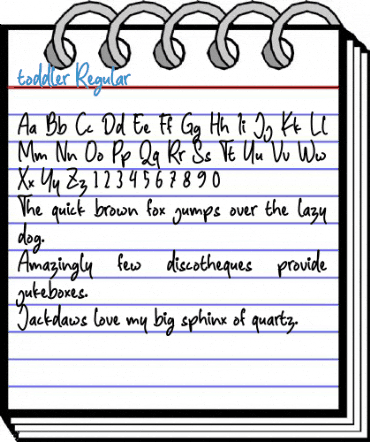 toddler Regular
Aa Bb Cc Dd Ee Ff Gg Hh Ii Jj Kk Ll
Mm Nn Oo Pp Qq Rr Ss Tt Uu Vv Ww
Xx Yy Zz 1 2 3 4 5 6 7 8 9 0
The quick brown fox jumps over the lazy
dog.
Amazingly few discotheques provide
jukeboxes.
Jackdaws love my big sphinx of quartz.